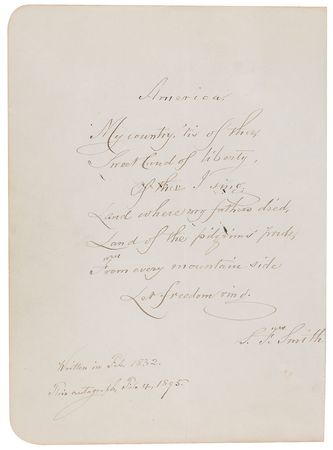 America.
My country, 'tis of thee,
Sweet land of liberty,
Of thee I sing,
Land where my fathers died,
Land of the pilgrims' pride,
From every mountain side
Let freedom ring.
S. F. Smith
Written in Feb. 1832.
This autograph, Feb. 4, 1895.